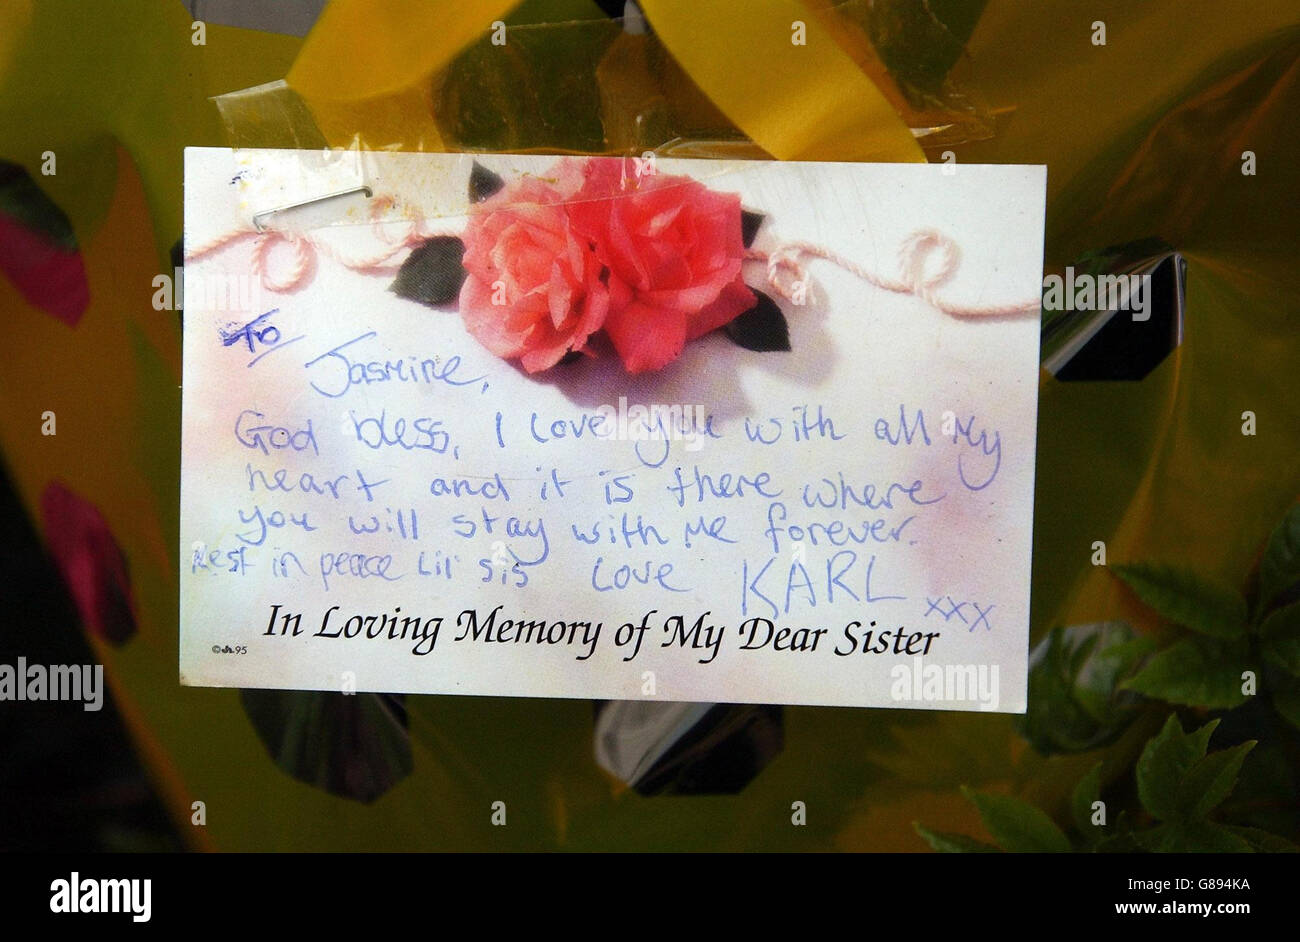 To
Jasmine,
God bless, I love you with all My
heart and it is there where
you will stay with me forever.
Rest in peace Lil' sis Love KARL xxx
In Loving Memory of My Dear Sister
95
alamy
Image ID: G8994KA
www.alamy.com